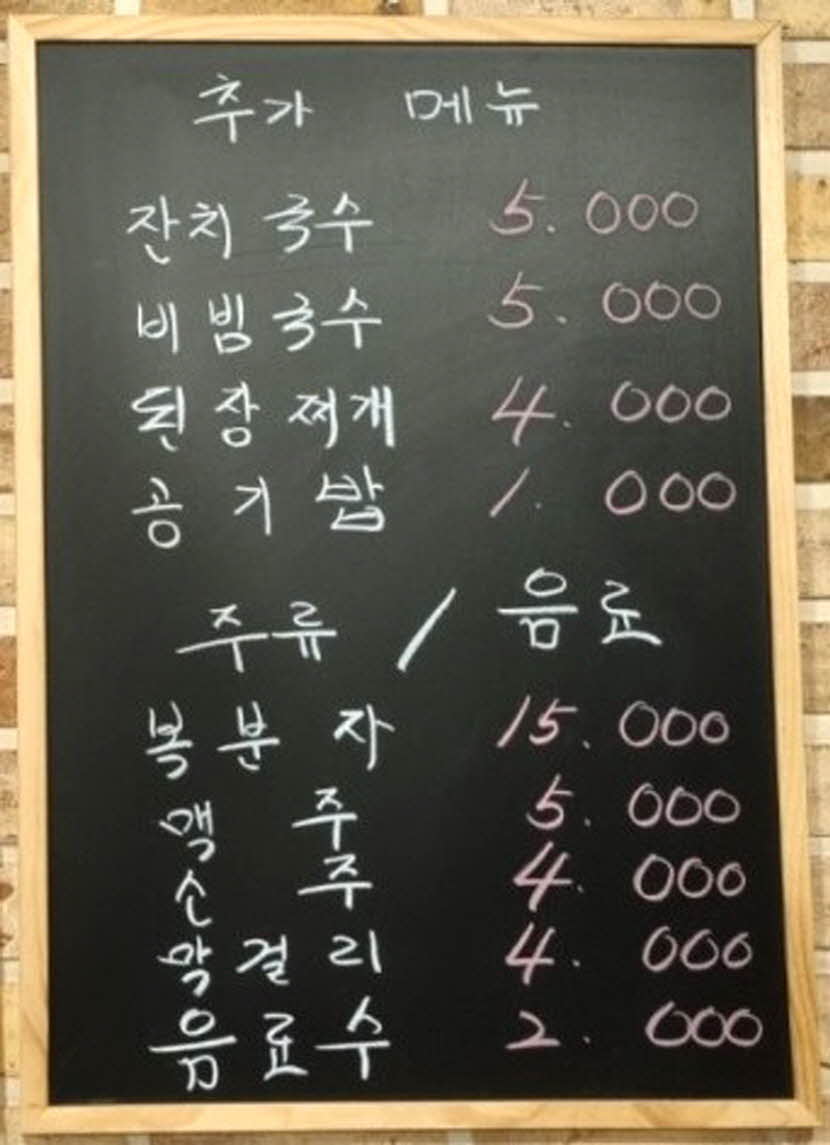 추가 메뉴
잔치국수 5.000
비빔국수 5.000
된장찌개 4.000
공기밥 1.000
주류 / 음료
복분자 15.000
맥주 5.000
소주 4.000
막걸리 4.000
음료수 2.000